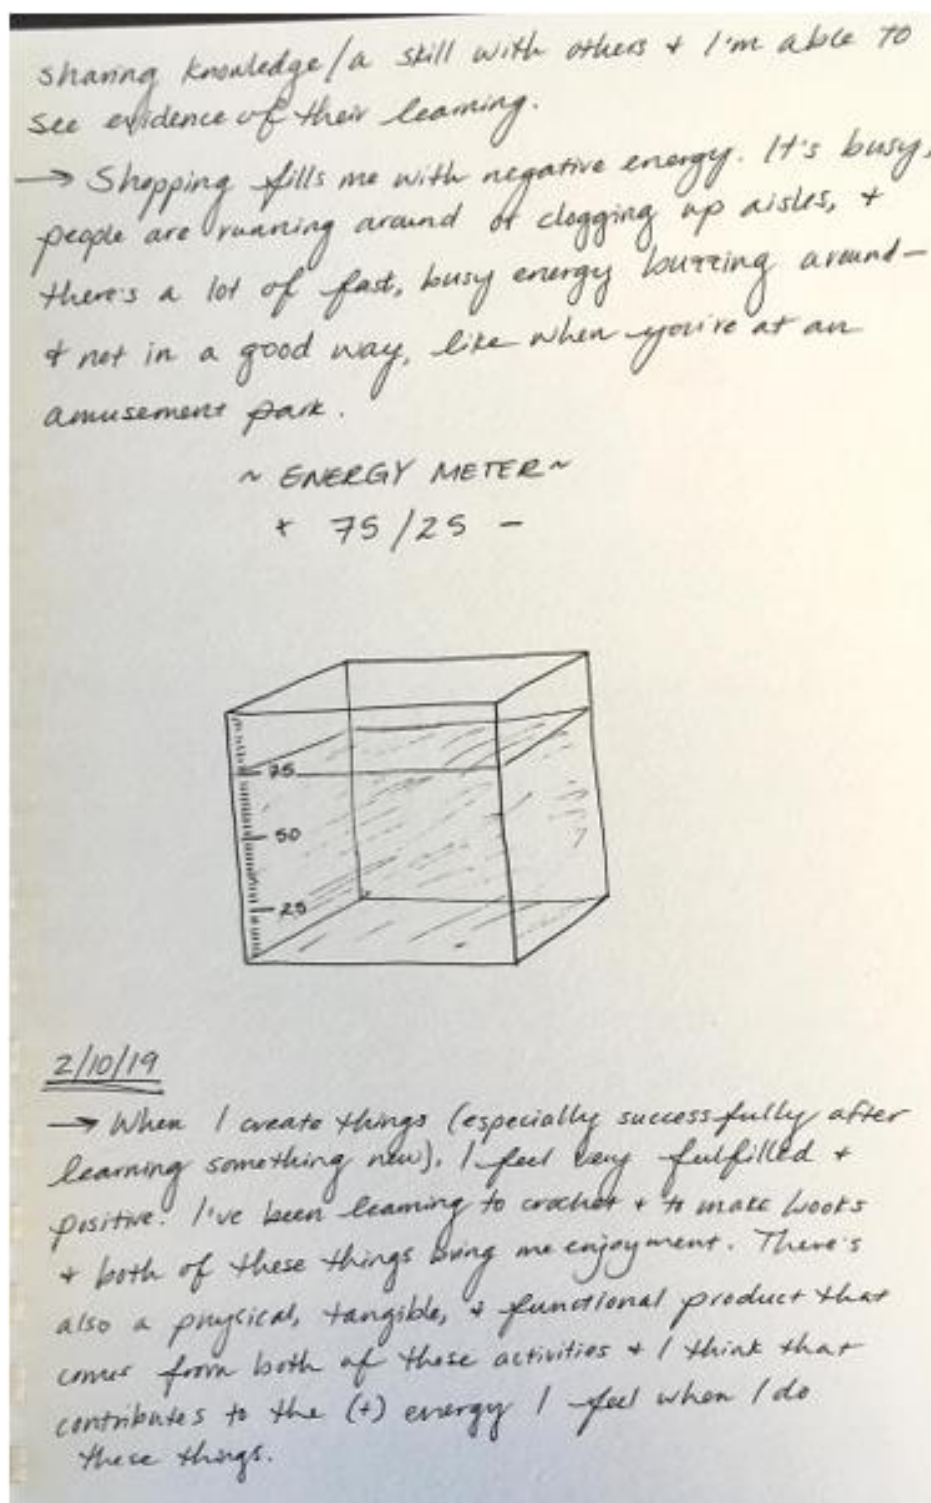 sharing knowledge/a skill with others + I'm able to
see evidence of their learning.
→ Shopping fills me with negative energy. It's busy,
people are running around or clogging up aisles, +
there's a lot of fast, busy energy buzzing around—
+ not in a good way, like when you're at an
amusement park.
~ ENERGY METER ~
+ 75/25 -
75
50
25
2/10/19
→ When I create things (especially successfully after
learning something new), I feel very fulfilled +
positive. I've been learning to crochet + to make books
+ both of these things bring me enjoyment. There's
also a physical, tangible, + functional product that
comes from both of these activities + I think that
contributes to the (+) energy I feel when I do
these things.